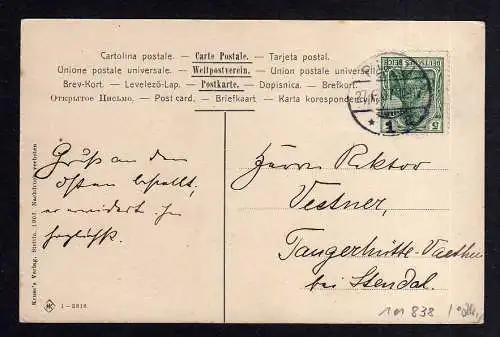 Cartolina postale. — Carte Postale. — Tarjeta postal.
Unione postale universale. — Weltpostverein. — Unión postal universal.
Brev-Kort. — Levelező-Lap. — Postkarte. — Dopisnica. — Brefkort.
Открытое Письмо. — Post card. — Briefkaart — Karta korespondencyjna
DEUTSCHES REICH
5
1
Gruß an den
bestellt,
er erwidert ihn
Herrn Rektor
Vestner,
Tangerhütte-Vaethen
bei Stendal.
Kruse's Verlag, Stettin, 1903. Nachdruck verboten
1-2816
101 838